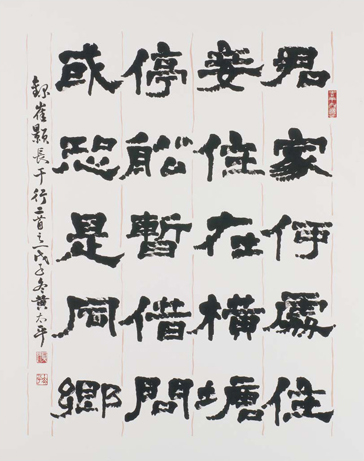 君家何處住
妾住在橫塘
停船暫借問
或恐是同鄉
録崔顥長干行二首之一戊子冬黄太平